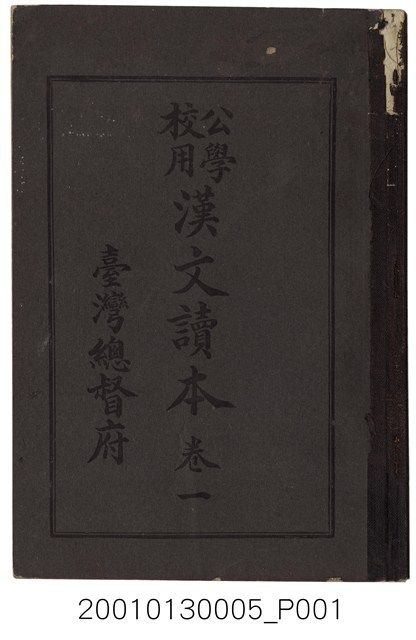 公學校用
漢文讀本 卷一
臺灣總督府
20010130005_P001